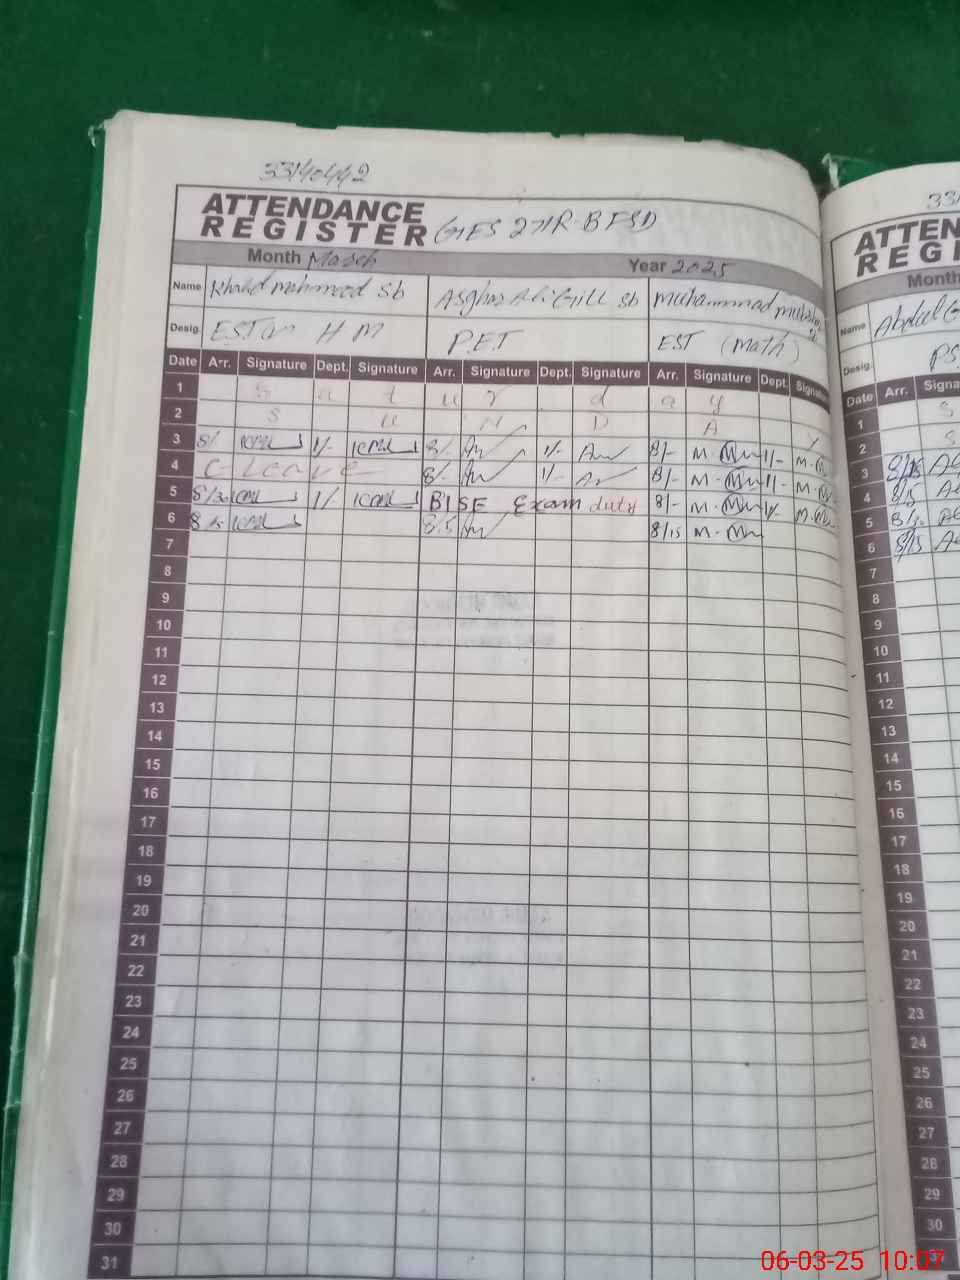 33140442
ATTENDANCE
REGISTER
Month March Year 2025
Name Khalid mahmood Sb Asghar Ali Gill Sb Muhammad
Desig. EST HM P.E.T EST (Math)
Date Arr. Signature Dept. Signature Arr. Signature Dept. Signature Arr. Signature Dept. Signature
1 S a t u r d a y
2 S U N D A Y
3 8/- 1/- 8/- 1/- 8/- M. 1/- M.
4 C-Leave 8/- 1/- 8/- M. 1/- M.
5 8/30 1/- BISE Exam duty 8/- M. 1/- M.
6 8/15 M.
7
8
9
10
11
12
13
14
15
16
17
18
19
20
21
22
23
24
25
26
27
28
29
30
31
33
ATTEN
REGI
Month
Name Abdul
Desig. PS
Date Arr. Signa
1 S
2 S
3 8/15
4 8/15
5
6 8/15
7
8
9
10
11
12
13
14
15
16
17
18
19
20
21
22
23
24
25
26
27
28
29
30
06-03-25 10:07